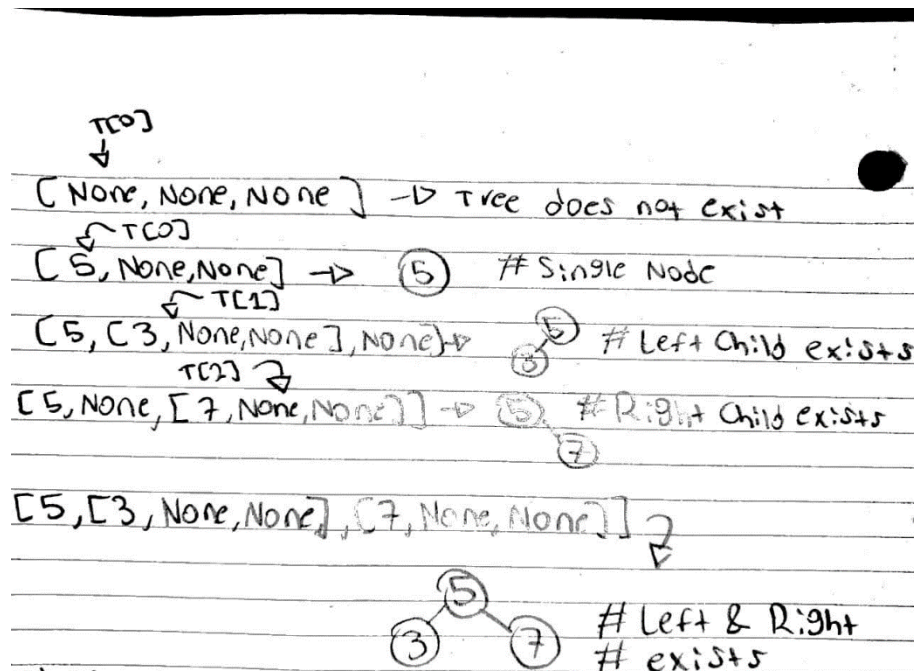 T[0]
[None, None, None] → Tree does not exist
T[0]
[5, None, None] → 5 # Single Node
T[1]
[5, [3, None, None], None] → 5 3 # Left Child exists
T[2]
[5, None, [7, None, None]] → 5 7 # Right Child exists
[5, [3, None, None], [7, None, None]]
5
3 7 # Left & Right
# exists